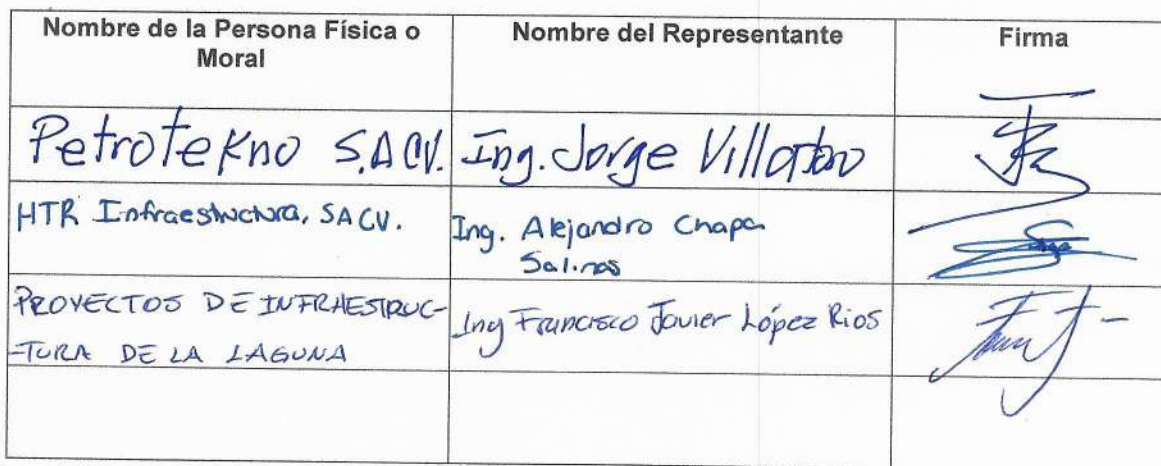 Nombre de la Persona Física o
Moral
Nombre del Representante
Firma
Petrotekno S.A CV.
Ing. Jorge
HTR Infraestructura, SACV.
Ing. Alejandro Chapa
Salinas
PROYECTOS DE INFRAESTRUC-
-TURA DE LA LAGUNA
Ing Francisco Javier López Rios